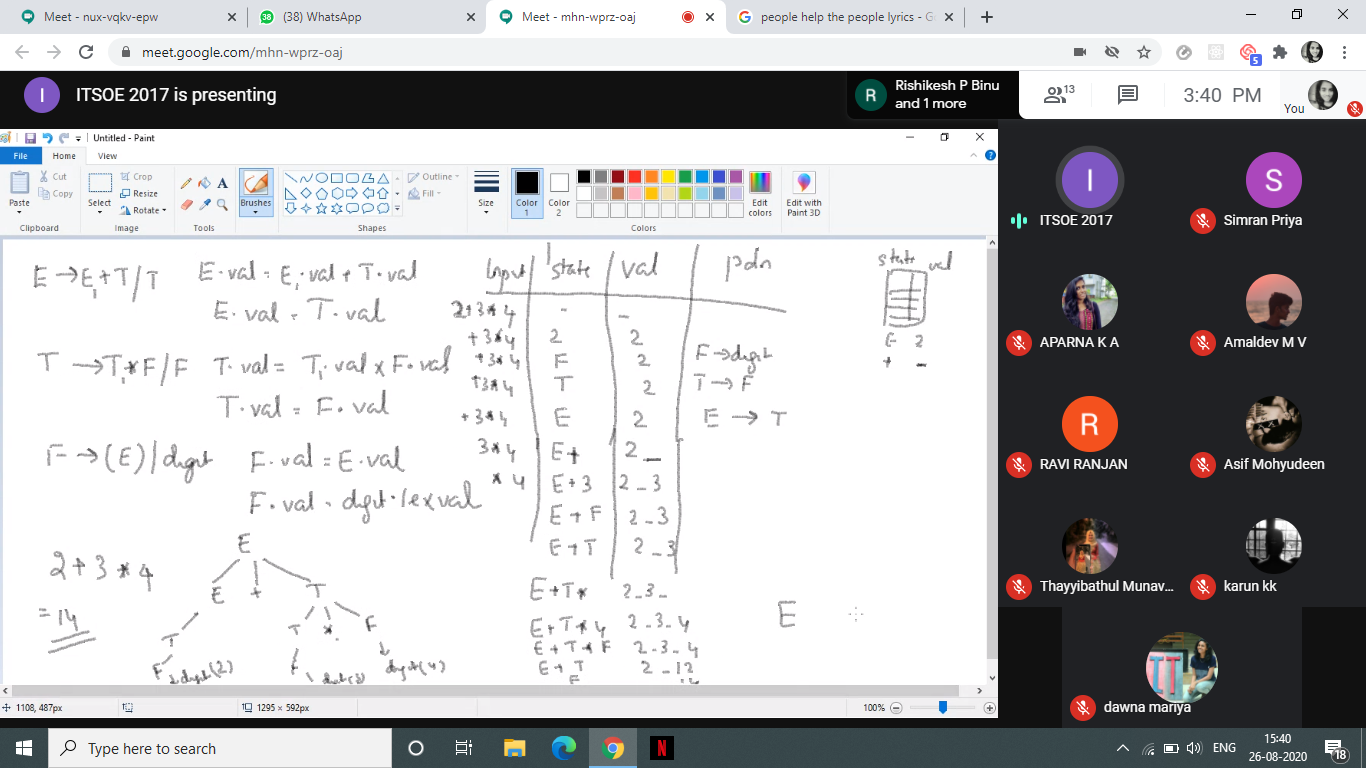 Meet - nux-vqkv-epw
(38) WhatsApp
Meet - mhn-wprz-oaj
people help the people lyrics - G
meet.google.com/mhn-wprz-oaj
5
I
ITSOE 2017 is presenting
R
Rishikesh P Binu
and 1 more
13
3:40 PM
You
Untitled - Paint
File
Home
View
Paste
Cut
Copy
Clipboard
Select
Crop
Resize
Rotate
Image
A
Tools
Brushes
Outline
Fill
Shapes
Size
Color
1
Color
2
Edit
colors
Colors
Edit with
Paint 3D
E → E₁ + T / T
E.val = E₁.val + T.val
E.val = T.val
T → T₁ * F / F
T.val = T₁.val x F.val
T.val = F.val
F → (E) | digit
F.val = E.val
F.val = digit.lexval
2 + 3 * 4
= 14
E
E + T
T T * F
F digit(2) F digit(4)
Input state val pdn
2+3*4 - -
+3*4 2 2
+3*4 F 2 F → digit
+3*4 T 2 T → F
+3*4 E 2 E → T
3*4 E+ 2 _
*4 E+3 2 _ 3
E+F 2 _ 3
E+T 2 _ 3
E+T* 2 _ 3 _
E+T*4 2 _ 3 _ 4
E+T*F 2 _ 3 _ 4
E+T 2 _ 12
E
state val
E 2
+ _
1108, 487px
1295 × 592px
100%
I
ITSOE 2017
S
Simran Priya
APARNA K A
Amaldev M V
R
RAVI RANJAN
Asif Mohyudeen
Thayyibathul Munav...
karun kk
dawna mariya
Type here to search
N
ENG
15:40
26-08-2020
18